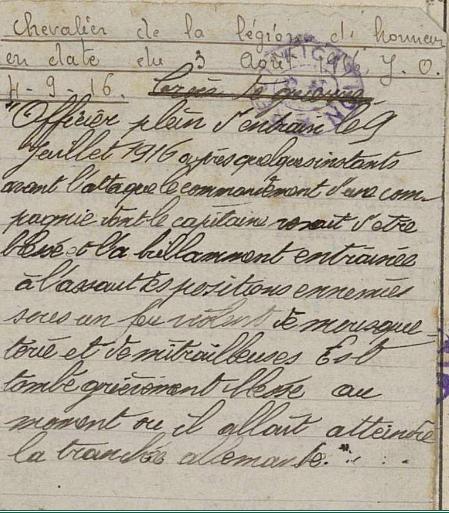 Chevalier de la légion d'honneur
en date du 3 Août J. O.
4-9-16. Croix de guerre
"Officier plein d'entrain le 9
Juillet 1916 après quelques instants
avant l'attaque le commandement d'une com-
pagnie dont le capitaine venait d'être
blessé et l'a brillamment entrainée
à l'assaut des positions ennemies
sous un feu violent de mousque-
terie et de mitrailleuses Est
tombé grièvement blessé au
moment ou il allait atteindre
la tranchée allemande."